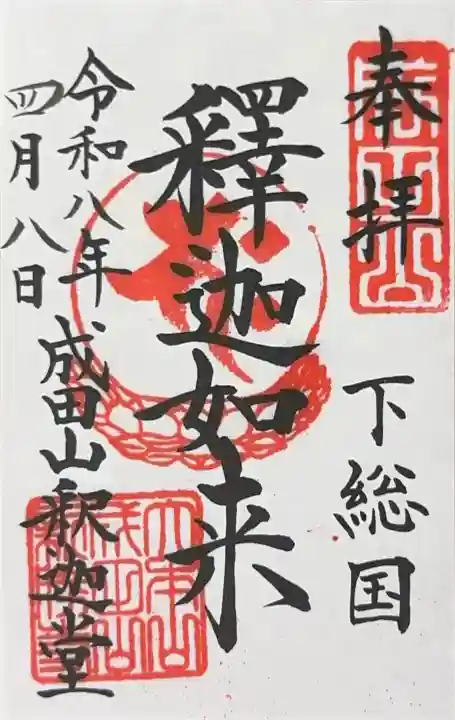 奉拝
下総国
釋迦如来
令和八年
四月八日
成田山釈迦堂